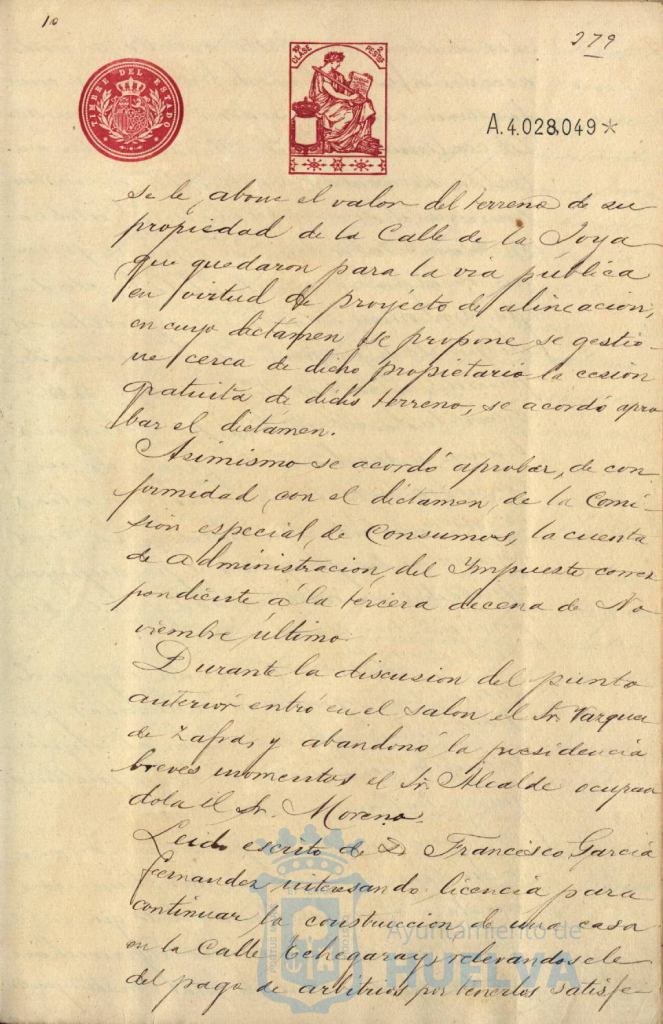 10
279
TIMBRE DEL ESTADO
CLASE 10ª PESTAS 2
A.4.028.049*
se le abone el valor del terreno de su
propiedad de la Calle de la Joya
que quedaron para la via pública
en virtud de proyecto de alineacion,
en cuyo dictámen se propone se gestio-
ne cerca de dicho propietario la cesión
gratuita de dicho terreno, se acordó apro
bar el dictamen.
Asimismo se acordó aprobar, de con
formidad con el dictámen de la Comi-
sión especial de Consumos, la cuenta
de administracion del Impuesto corres
pondiente á la tercera decena de No
viembre último.
Durante la discusion del punto
anterior entró en el salon el Sr. Vazquez
de Zafra, y abandonó la presidencia
breves momentos el Sr. Alcalde ocupan
dola el Sr. Moreno.
Leido escrito de D Francisco Garcia
Fernandez interesando licencia para
continuar la construccion de una casa
en la Calle Echegaray relevandosele
del pago de arbitrios por tenerlos satisfe-
Ayuntamiento de
HUELVA